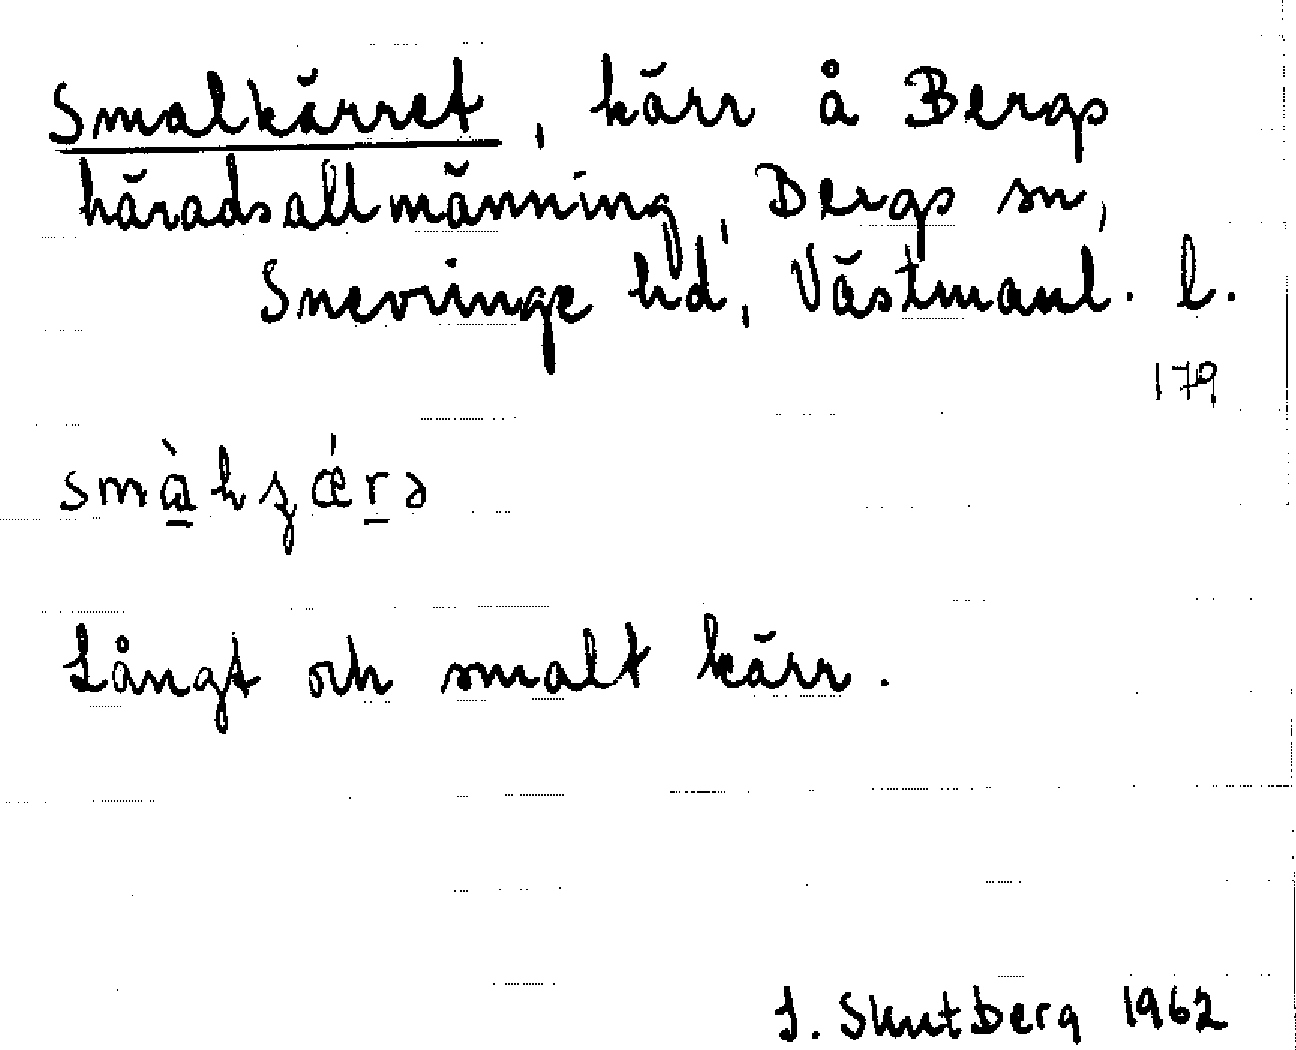 Smalkärret, kärr å Bergs
häradsallmänning, Bergs sn,
Snevringe hd, Västmanl. l.
179
Långt och smalt kärr.
J. Skutberg 1962